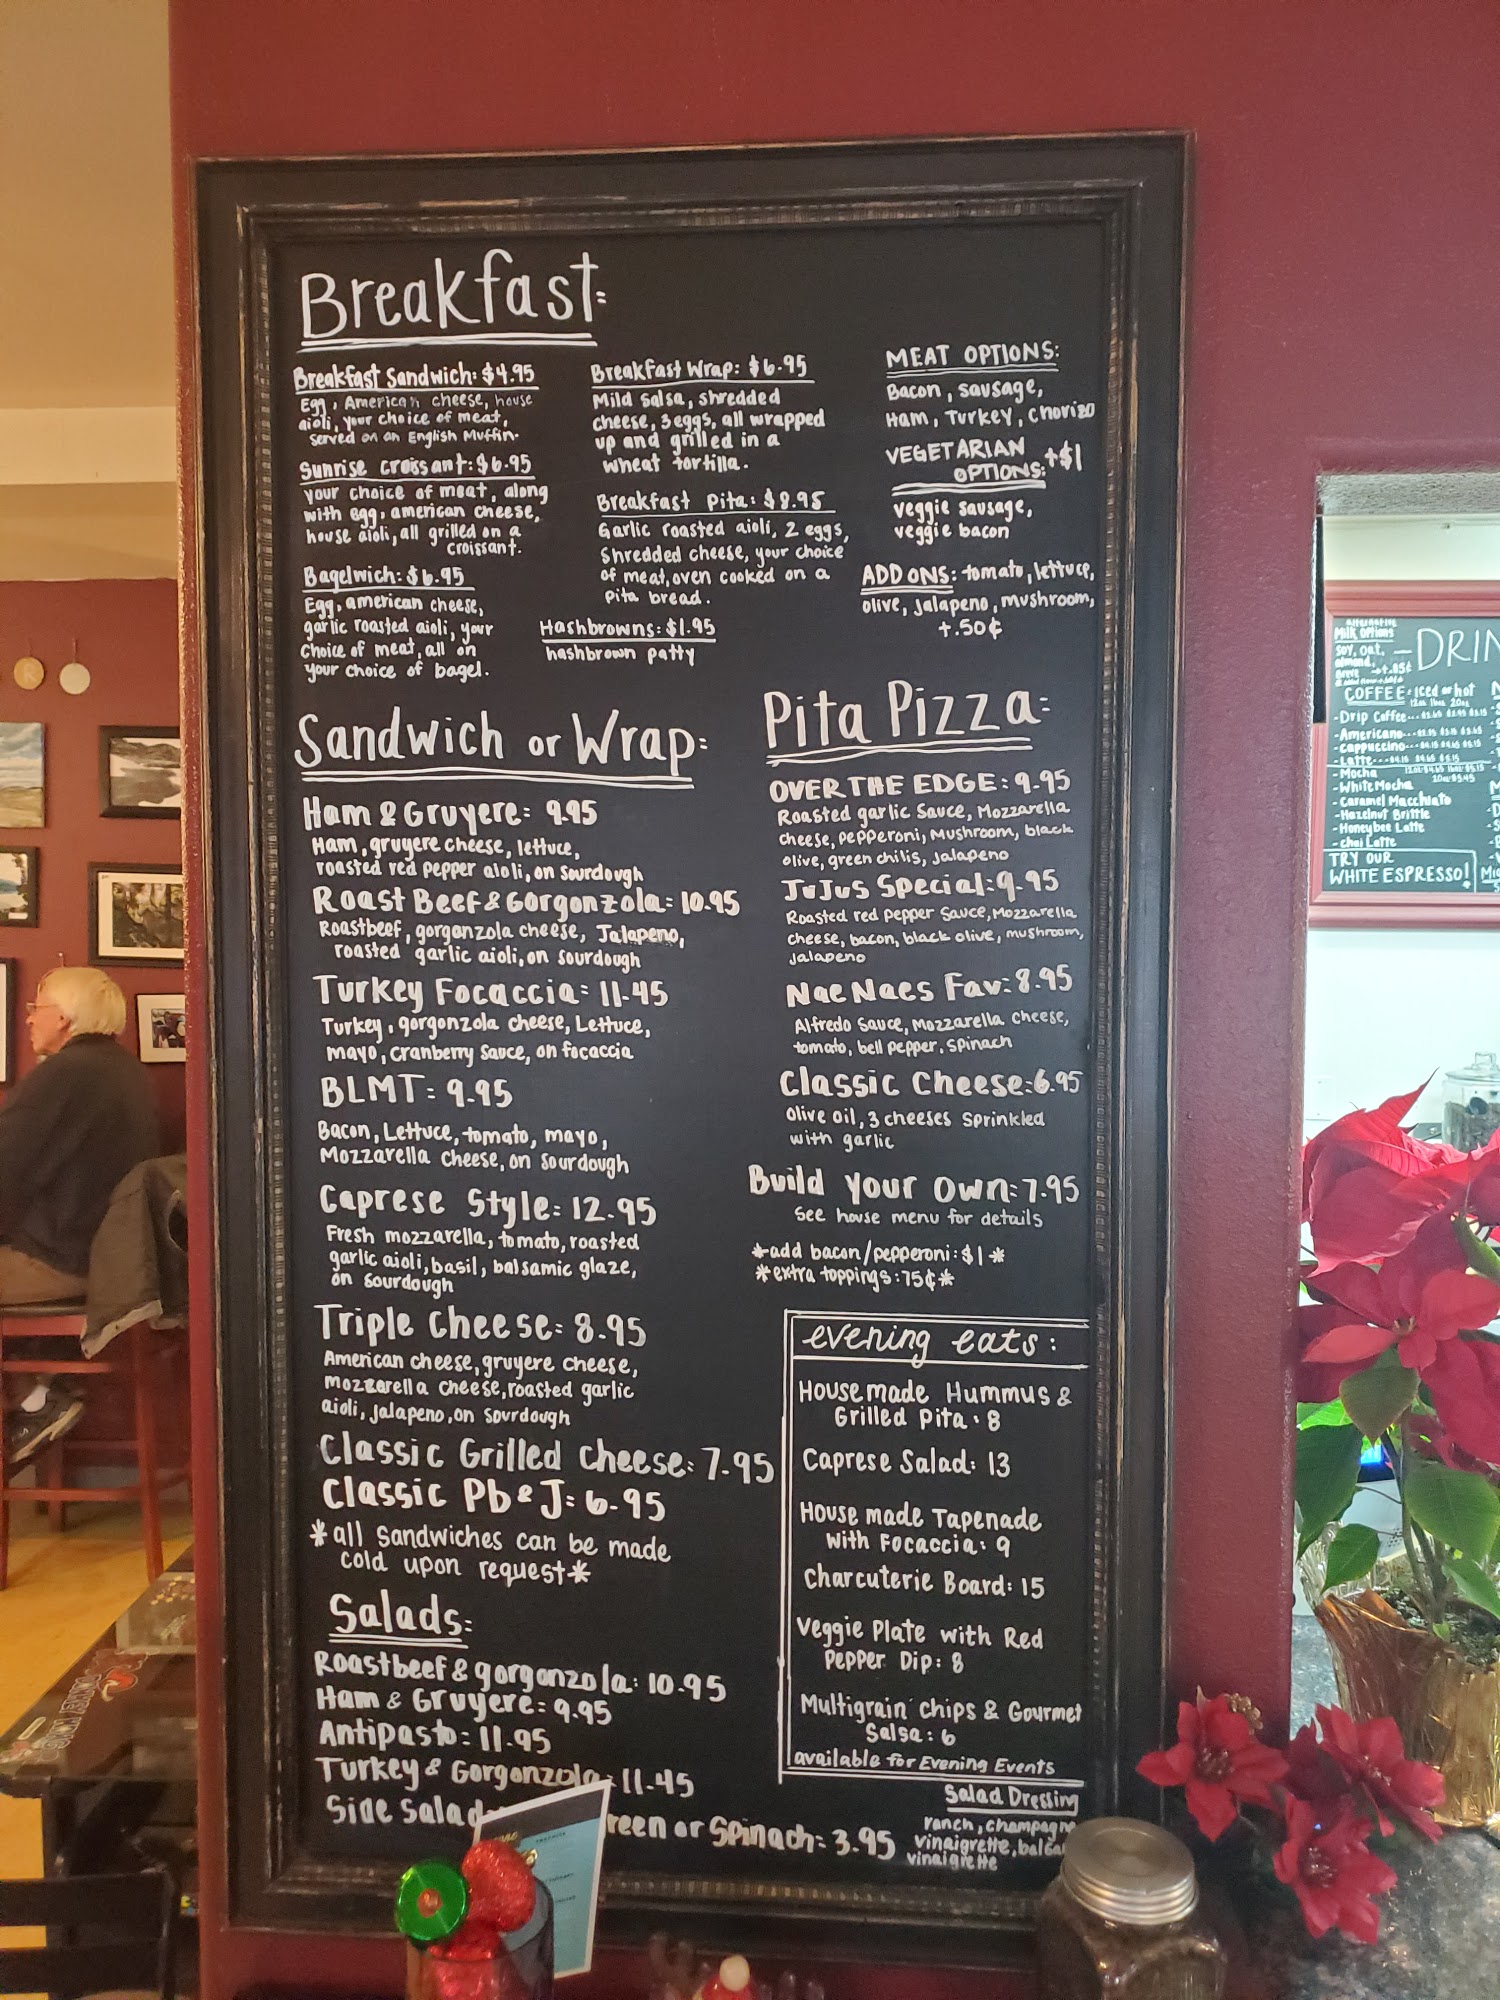 Breakfast:
Breakfast Sandwich: $4.95
Egg, American cheese, house
aioli, your choice of meat,
served on an English Muffin.
Sunrise croissant: $6.95
your choice of meat, along
with egg, american cheese,
house aioli, all grilled on a
croissant.
Bagelwich: $6.95
Egg, american cheese,
garlic roasted aioli, your
choice of meat, all on
your choice of bagel.
Breakfast Wrap: $6.95
Mild salsa, shredded
cheese, 3 eggs, all wrapped
up and grilled in a
wheat tortilla.
Breakfast Pita: $8.95
Garlic roasted aioli, 2 eggs,
Shredded cheese, your choice
of meat, oven cooked on a
pita bread.
Hashbrowns: $1.95
hashbrown patty
MEAT OPTIONS:
Bacon, sausage,
Ham, Turkey, chorizo
VEGETARIAN
OPTIONS: +$1
veggie sausage,
veggie bacon
ADD ONS: tomato, lettuce,
olive, jalapeno, mushroom,
+.50¢
Sandwich or Wrap:
Ham & Gruyere: 9.95
Ham, gruyere cheese, lettuce,
roasted red pepper aioli, on sourdough
Roast Beef & Gorgonzola: 10.95
Roastbeef, gorgonzola cheese, Jalapeno,
roasted garlic aioli, on sourdough
Turkey Focaccia: 11.45
Turkey, gorgonzola cheese, Lettuce,
mayo, cranberry sauce, on focaccia
BLMT: 9.95
Bacon, Lettuce, tomato, mayo,
Mozzarella cheese, on sourdough
Caprese Style: 12.95
Fresh mozzarella, tomato, roasted
garlic aioli, basil, balsamic glaze,
on sourdough
Triple Cheese: 8.95
American cheese, gruyere cheese,
mozzarella cheese, roasted garlic
aioli, jalapeno, on sourdough
Classic Grilled cheese: 7.95
Classic Pb & J: 6.95
*all sandwiches can be made
cold upon request*
Salads:
Roastbeef & gorgonzola: 10.95
Ham & Gruyere: 9.95
Antipasto: 11.95
Turkey & Gorgonzola: 11.45
Side salad reen or Spinach: 3.95
Pita Pizza:
OVER THE EDGE: 9.95
Roasted garlic Sauce, Mozzarella
cheese, pepperoni, Mushroom, black
olive, green chilis, jalapeno
JuJus Special: 9.95
Roasted red pepper Sauce, Mozzarella
cheese, bacon, black olive, mushroom,
jalapeno
Nae Naes Fav: 8.95
Alfredo Sauce, Mozzarella cheese,
tomato, bell pepper, spinach
Classic Cheese: 6.95
olive oil, 3 cheeses sprinkled
with garlic
Build your own: 7.95
see house menu for details
*add bacon/pepperoni: $1*
*extra toppings: 75¢*
evening eats:
House made Hummus &
Grilled Pita: 8
Caprese Salad: 13
House made Tapenade
with Focaccia: 9
Charcuterie Board: 15
Veggie Plate with Red
Pepper Dip: 8
Multigrain chips & Gourmet
Salsa: 6
available for Evening Events
Salad Dressing
ranch, champagne
vinaigrette, balsa
vinaigrette
alternative
Milk options
soy, oat,
almond,
DRIN
COFFEE: Iced or hot
12oz 16oz 20oz
-Drip Coffee
-Americano
-cappuccino
-Latte
-Mocha
-White Mocha
-Caramel Macchiato
-Hazelnut Brittle
-Honeybee Latte
-chai Latte
TRY OUR
WHITE ESPRESSO!